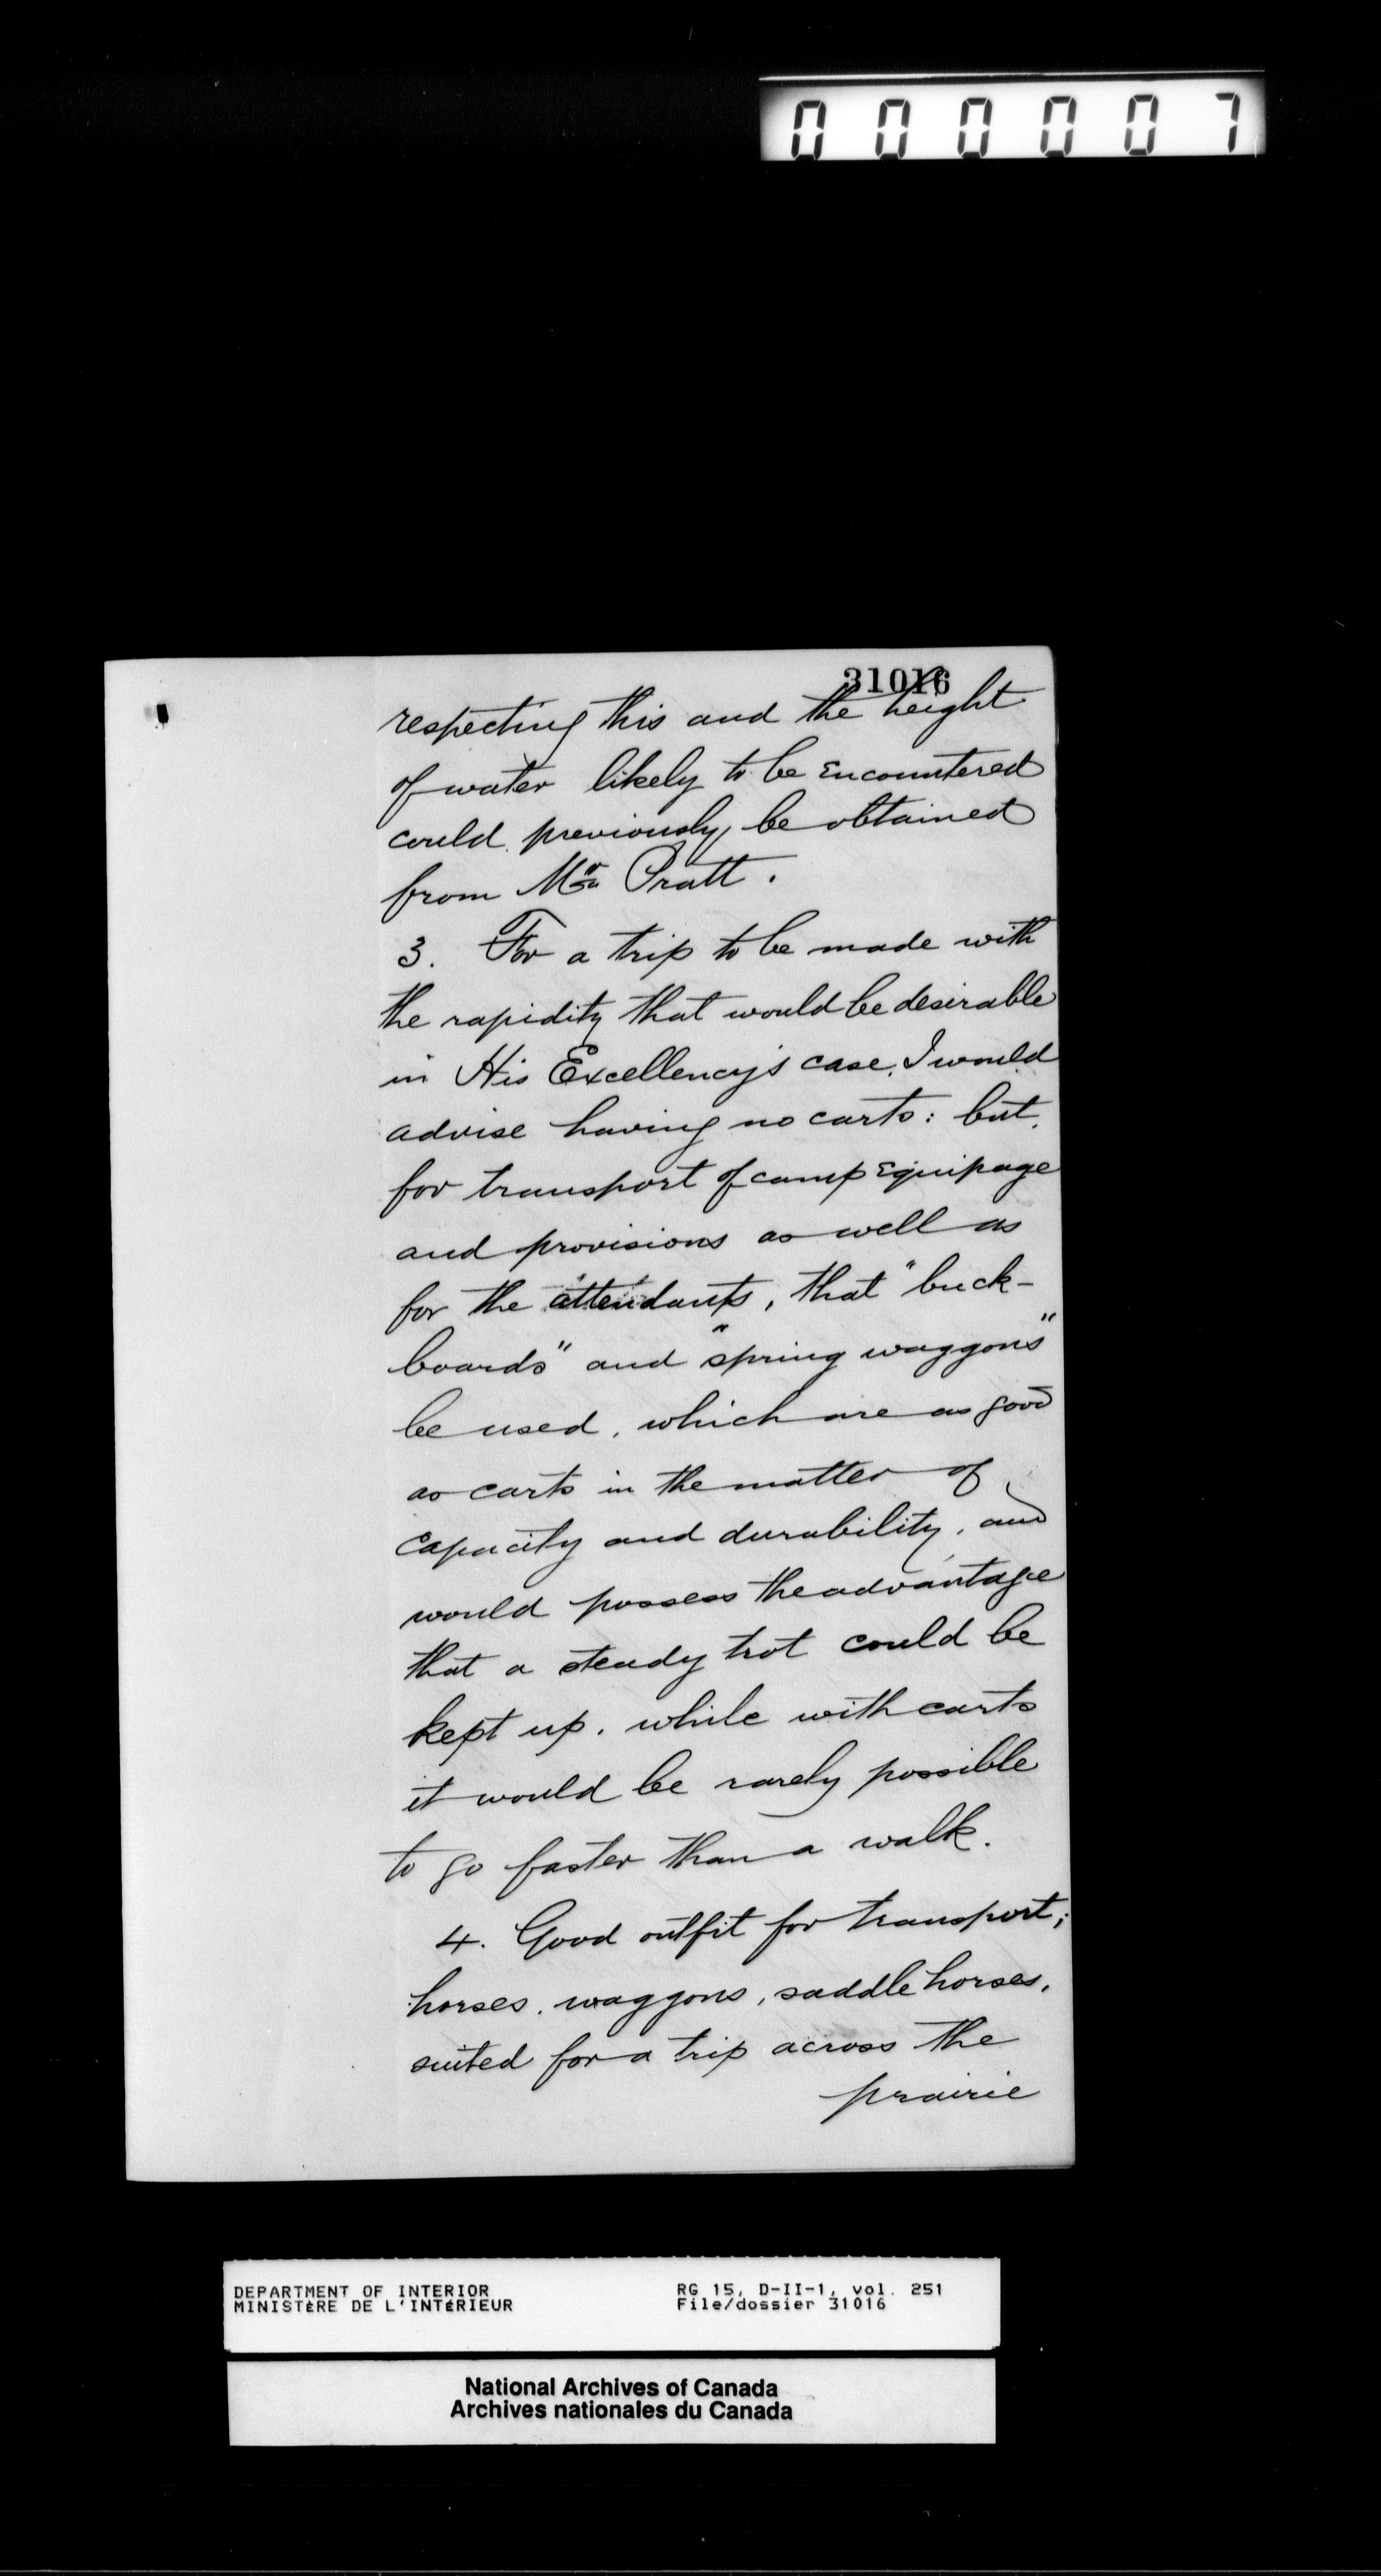 0 0 0 0 0 7
31016
respecting this and the height
of water likely to be encountered
could previously be obtained
from Mr Pratt.
3. For a trip to be made with
the rapidity that would be desirable
in His Excellency's case, I would
advise having no carts: but,
for transport of camp equipage
and provisions as well as
for the attendants, that "buck-
boards" and "spring waggons"
be used, which are as good
as carts in the matter of
capacity and durability, and
would possess the advantage
that a steady trot could be
kept up, while with carts
it would be rarely possible
to go faster than a walk.
4. Good outfit for transport;
horses, waggons, saddle horses,
suited for a trip across the
prairie
DEPARTMENT OF INTERIOR RG 15, D-II-1, vol. 251
MINISTÈRE DE L'INTÉRIEUR File/dossier 31016
National Archives of Canada
Archives nationales du Canada